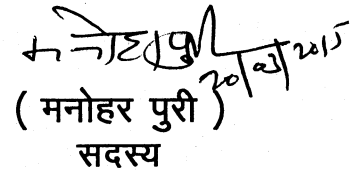 मनोहर पुरी 20/03/2015
( मनोहर पुरी )
सदस्य